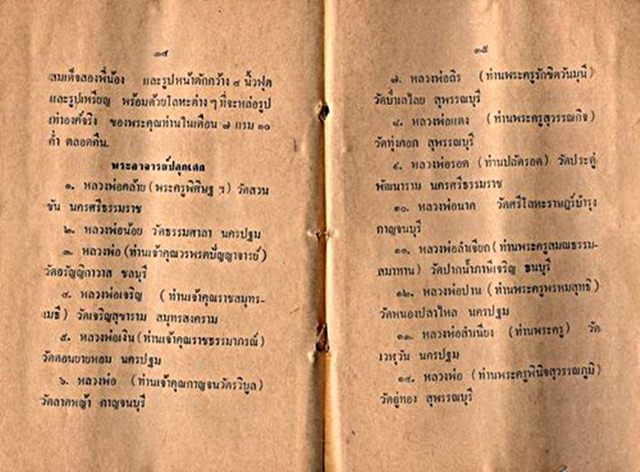 ๓๔
สมเด็จสองพี่น้อง และรูปหน้าตักกว้าง ๔ นิ้วฟุต
และรูปเหรียญ พร้อมด้วยโลหะต่าง ๆ ที่จะหล่อรูป
เท่าองค์จริง ของพระคุณท่านในเดือน ๗ แรม ๑๐
ค่ำ ตลอดคืน.
พระอาจารย์ปลุกเสก
๑. หลวงพ่อคล้าย (พระครูพิศิษฐ ฯ) วัดสวน
ขัน นครศรีธรรมราช
๒. หลวงพ่อน้อย วัดธรรมศาลา นครปฐม
๓. หลวงพ่อ (ท่านเจ้าคุณวรพรตปัญญาจารย์)
วัดอรัญญิกาวาส ชลบุรี
๔. หลวงพ่อเจริญ (ท่านเจ้าคุณราชสมุทร-
เมธี) วัดเจริญสุขาราม สมุทรสงคราม
๕. หลวงพ่อเงิน (ท่านเจ้าคุณราชธรรมาภรณ์)
วัดดอนยายหอม นครปฐม
๖. หลวงพ่อ (ท่านเจ้าคุณกาญจนวัตรวิบูล)
วัดลาดหญ้า กาญจนบุรี
๓๕
๗. หลวงพ่อถิร (ท่านพระครูรักขิตวันมุนี)
วัดป่าเลไลย สุพรรณบุรี
๘. หลวงพ่อแตง (ท่านพระครูสุวรรณกิจ)
วัดทุ่งคอก สุพรรณบุรี
๙. หลวงพ่อรอด (ท่านปลัดรอด) วัดประดู่
พัฒนาราม นครศรีธรรมราช
๑๐. หลวงพ่อนาค วัดศรีโลหะราษฎร์บำรุง
กาญจนบุรี
๑๑. หลวงพ่อลำเจียก (ท่านพระครูสมณธรรม-
สมาทาน) วัดปากน้ำภาษีเจริญ ธนบุรี
๑๒. หลวงพ่อปาน (ท่านพระครูพรหมสุทธิ)
วัดหนองปลาไหล นครปฐม
๑๓. หลวงพ่อสำเนียง (ท่านพระครู) วัด
เวฬุวัน นครปฐม
๑๔. หลวงพ่อ (ท่านพระครูพินิจสุวรรณภูมิ)
วัดอู่ทอง สุพรรณบุรี